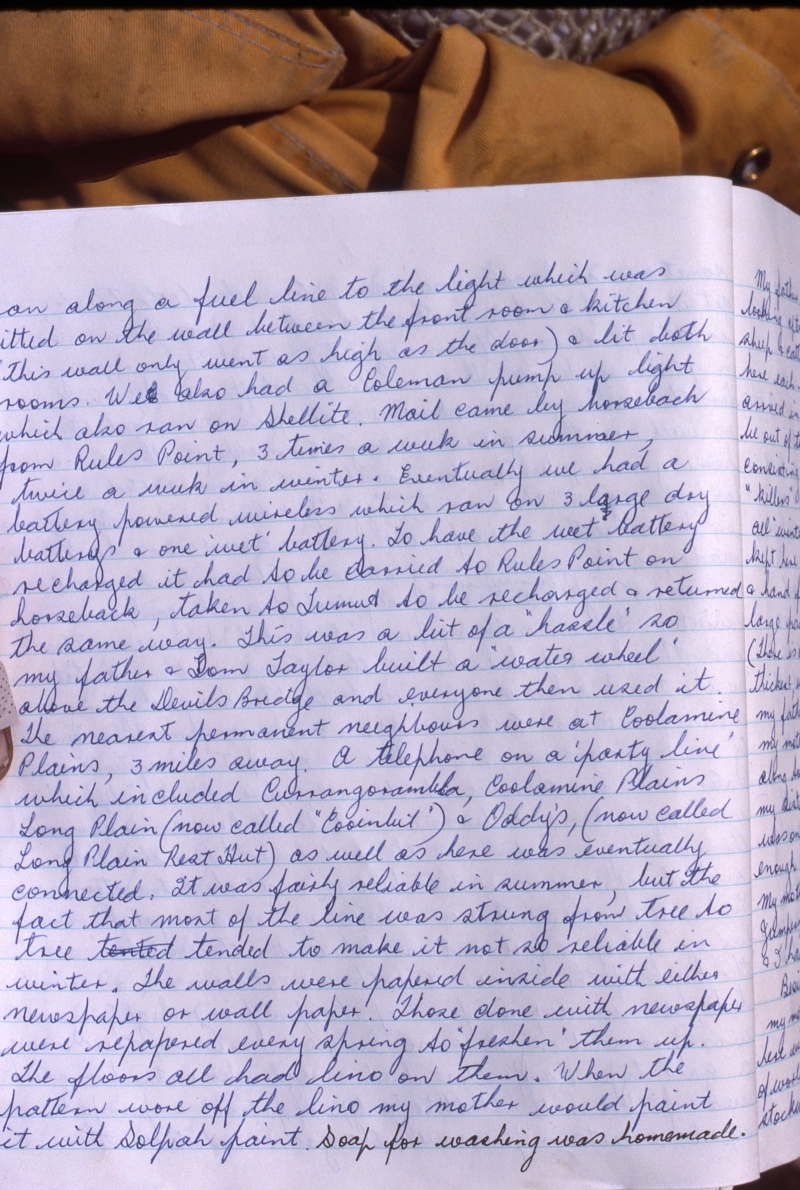 an along a fuel line to the light which was
itted on the wall between the front room & kitchen
this wall only went as high as the door) & lit both
rooms. We also had a Coleman pump up light
which also ran on Shellite. Mail came by horseback
from Rules Point, 3 times a week in summer,
twice a week in winter. Eventually we had a
battery powered wireless which ran on 3 large dry
batterys & one 'wet' battery. To have the wet battery
recharged it had to be carried to Rules Point on
horseback, taken to Tumut to be recharged & returned
the same way. This was a bit of a "hassle" so
my father & Tom Taylor built a "water wheel"
above the Devils Bridge and everyone then used it.
The nearest permanent neighbours were at Coolamine
Plains, 3 miles away. A telephone on a 'party line'
which included Currangorambla, Coolamine Plains
Long Plain (now called "Cooinbil") & Oddy's, (now called
Long Plain Rest Hut) as well as here was eventually
connected. It was fairly reliable in summer, but the
fact that most of the line was strung from tree to
tree tented tended to make it not so reliable in
winter. The walls were papered inside with either
newspaper or wall paper. Those done with newspaper
were repapered every spring to "freshen" them up.
The floors all had lino on them. When the
pattern wore off the lino my mother would paint
it with Solpah paint. Soap for washing was homemade.
My fathe
looking
sheep & catt
here each
arrived in
be out of t
consisting
"killers"
all wint
kept here
a hand f
large
(There is
thicket
my fath
my mot
alone
my
was on
enough
My mot
jumper
& I ha
my m
here
of wool
stockin